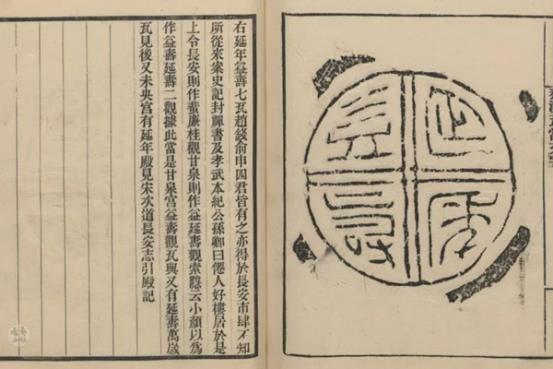 延年
益壽
右延年益壽七瓦趙錢俞申四君皆有之亦得於長安市肆不知
所從來案史記封禪書及孝武本紀公孫卿曰僊人好樓居於是
上令長安則作蜚廉桂觀甘泉則作益延壽觀索隱云小顏以為
作益壽延壽二觀據此當是甘泉宮益壽觀瓦與又有延壽萬歲
瓦見後又未央宮有延年殿見宋次道長安志引殿記